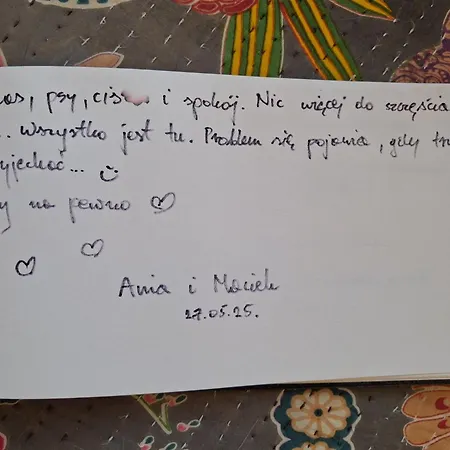 psy, cisza i spokój. Nic więcej do szczęścia
.. Wszystko jest tu. Problem się pojawia, gdy
... ☺
na pewno ♡
♡ ♡
Ania i Maciek
27.05.25.